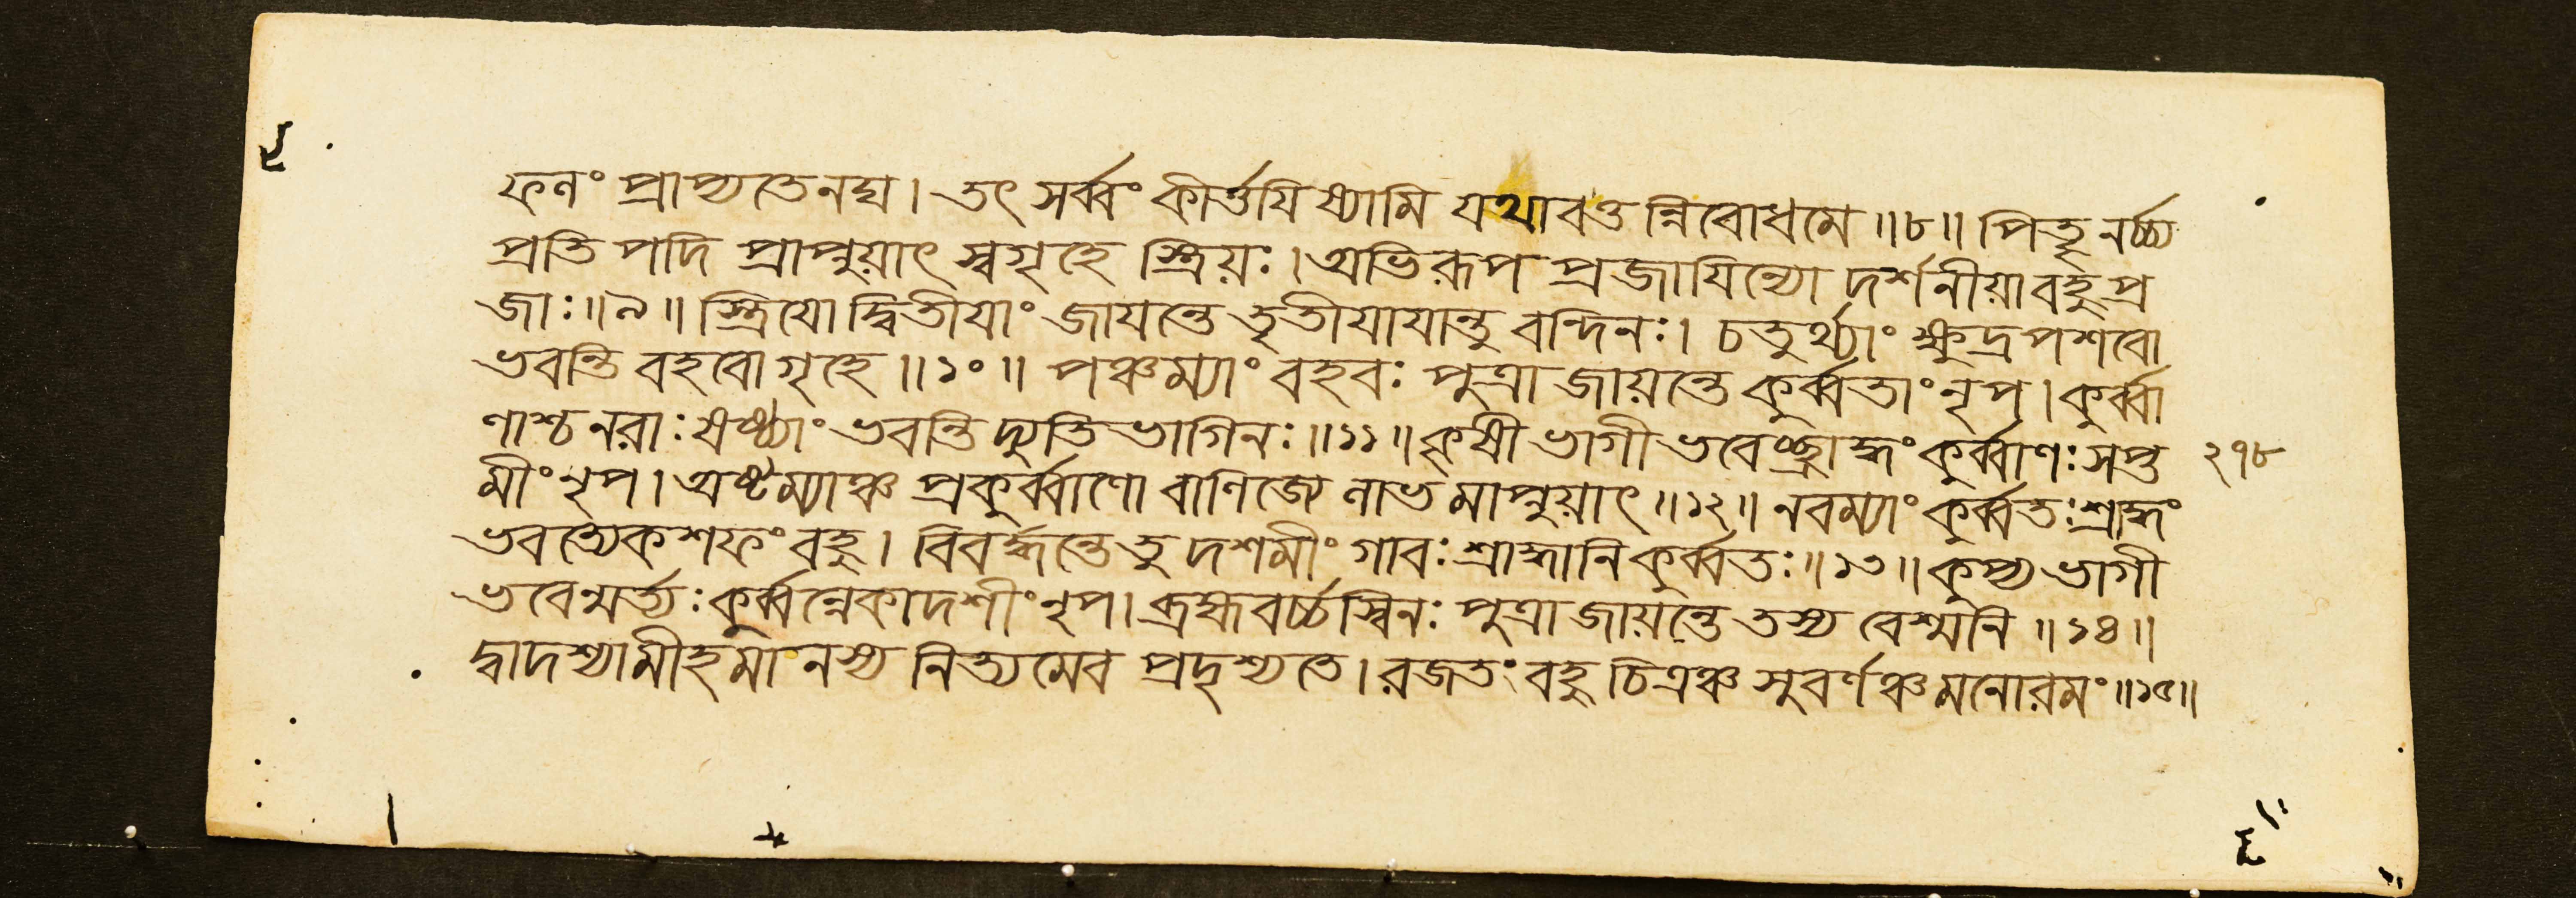 ফলং প্রাপ্যতেনঘ। তৎ সর্ব্বং কীর্ত্তযিষ্যামি যথাবত্তন্নিবোধমে॥৮॥ পিতৄনর্চ্চ্য
প্রতিপদি প্রাপ্নুয়াৎ স্বগৃহে স্ত্রিয়ঃ। অভিরূপপ্রজাযিন্যো দর্শনীয়াবহুপ্র
জাঃ॥৯॥ স্ত্রিযো দ্বিতীযাং জাযন্তে তৃতীযাযান্তু বন্দিনঃ। চতুর্থ্যাং ক্ষুদ্রপশবো
ভবন্তি বহবোগৃহে॥১০॥ পঞ্চম্যাং বহবঃ পুত্রা জায়ন্তে কুর্ব্বতাং নৃপ। কুর্ব্বা
ণাশ্চ নরাঃ ষষ্ঠ্যাং ভবন্তি দ্যুতিভাগিনঃ॥১১॥ কৃষীভাগী ভবেচ্ছ্রাদ্ধং কুর্ব্বাণঃ সপ্ত
২৭৮
মীং নৃপ। অষ্টম্যাঞ্চ প্রকুর্ব্বাণো বাণিজ্যে লাভমাপ্নুয়াৎ॥১২॥ নবম্যাং কুর্ব্বতঃ শ্রাদ্ধং
ভবত্যেকশফং বহু। বিবর্দ্ধন্তে তু দশমীং গাবঃ শ্রাদ্ধানি কুর্ব্বতঃ॥১৩॥ কুপ্যভাগী
ভবেন্মর্ত্যঃ কুর্ব্বন্নেকাদশীং নৃপ। ব্রহ্মবর্চ্চস্বিনঃ পুত্রা জায়ন্তে তস্য বেশ্মনি॥১৪॥
দ্বাদশ্যামীহমানস্য নিত্যমেব প্রদৃশ্যতে। রজতং বহু চিত্রঞ্চ সুবর্ণঞ্চ মনোরমং॥১৫॥